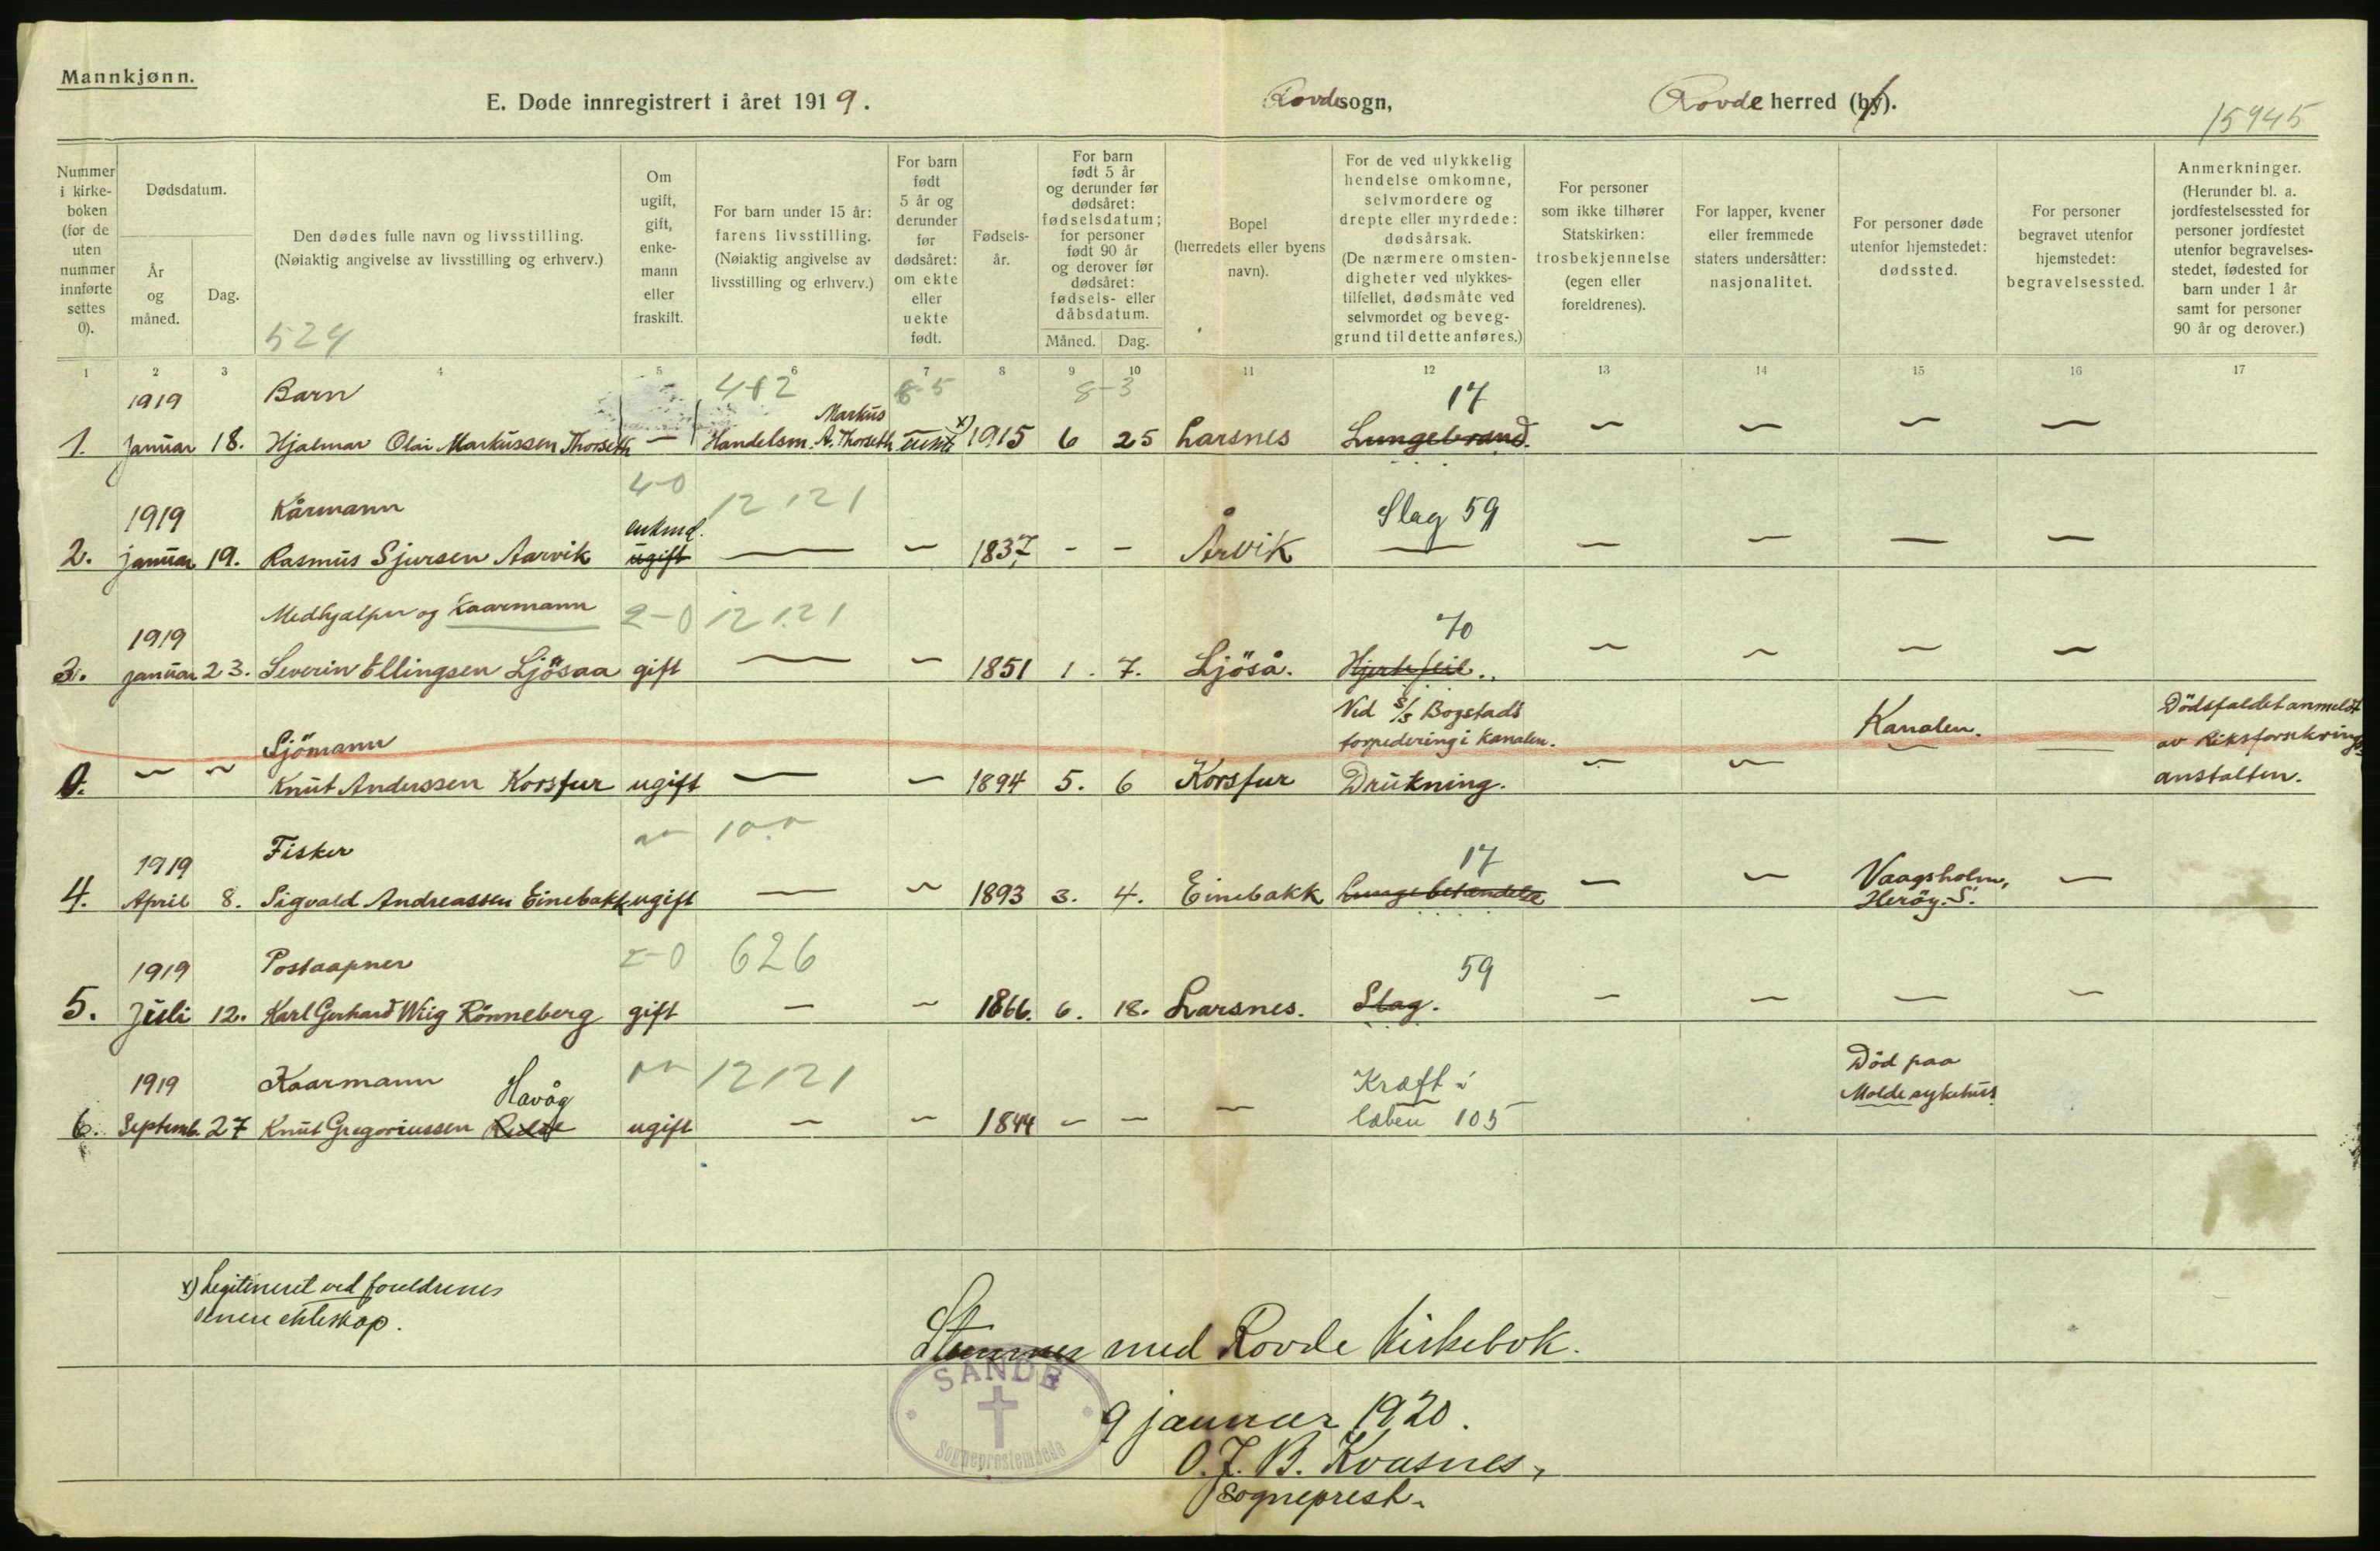 Mannkjønn.
E. Døde innregistrert i året 1919.
Rovde sogn,
Rovde herred (by).
15945
Nummer i kirke-boken (for de uten nummer innførte settes 0).
Dødsdatum.
År og måned.
Dag.
Den dødes fulle navn og livsstilling.
(Nøiaktig angivelse av livsstilling og erhverv.)
524
Om ugift, gift, enke-mann eller fraskilt.
For barn under 15 år: farens livsstilling. (Nøiaktig angivelse av livsstilling og erhverv.)
For barn født 5 år og derunder før dødsåret: om ekte eller uekte født.
Fødsels-år.
For barn født 5 år og derunder før dødsåret: fødselsdatum; for personer født 90 år og derover før dødsåret: fødsels- eller dåbsdatum.
Måned.
Dag.
Bopel (herredets eller byens navn).
For de ved ulykkelig hendelse omkomne, selvmordere og drepte eller myrdede: dødsårsak. (De nærmere omsten-digheter ved ulykkes-tilfellet, dødsmåte ved selvmordet og beveg-grund til dette anføres.)
For personer som ikke tilhører Statskirken: trosbekjennelse (egen eller foreldrenes).
For lapper, kvener eller fremmede staters undersåtter: nasjonalitet.
For personer døde utenfor hjemstedet: dødssted.
For personer begravet utenfor hjemstedet: begravelsessted.
Anmerkninger. (Herunder bl. a. jordfestelsessted for personer jordfestet utenfor begravelses-stedet, fødested for barn under 1 år samt for personer 90 år og derover.)
1 2 3 4 5 6 7 8 9 10 11 12 13 14 15 16 17
1919 Barn 8-5 8-3 17
Markus
1. Januar 18. Hjalmar Olai Markussen Thorseth — Handelsm. A. Thorseth uekte x) 1915 6 25 Larsnes Lungebrand. — — — —
4-0 12121
1919 Kårmann enkmd. Slag 59
2. januar 19. Rasmus Sjursen Aarvik ugift — — 1837 - - Årvik — — — — —
1919 Medhjælper og Kaarmann 2-0 12121 70
3. januar 23. Severin Ellingsen Ljösaa gift — — 1851 1. 7. Ljöså. Hjertefeil. — — — —
Sjömann Ved S/S Bogstads torpedering i Kanalen. Kanalen. Dödsfaldet anmeldt av Riksforsikrings-
0. — — Knut Anderssen Korsfur ugift — — 1894 5. 6 Korsfur Drukning. — — — — anstalten.
1919 Fisker 17
4. April 8. Sigvald Andreassen Einebakk ugift — — 1893 3. 4. Einebakk Lungebetændelse — — Vaagsholm, Heröy. S. —
1919 Postaapner 2-0 626 59
5. Juli 12. Karl Gerhard Wiig Rönneberg gift — — 1866. 6. 18. Larsnes. Slag. — — — —
1919 Kaarmann Havåg 12121 Kræft i Død paa
6. Septemb. 27 Knut Gregoriussen ugift — — 1844 — — — læben 105 Molde sykehus
x) Legitimeret ved foreldrenes
senere ekteskap.
Stemmer med Rovde Kirkebok.
SANDE
Sogneprestembede
9 januar 1920.
O. J. B. Kvasnes,
Sogneprest.